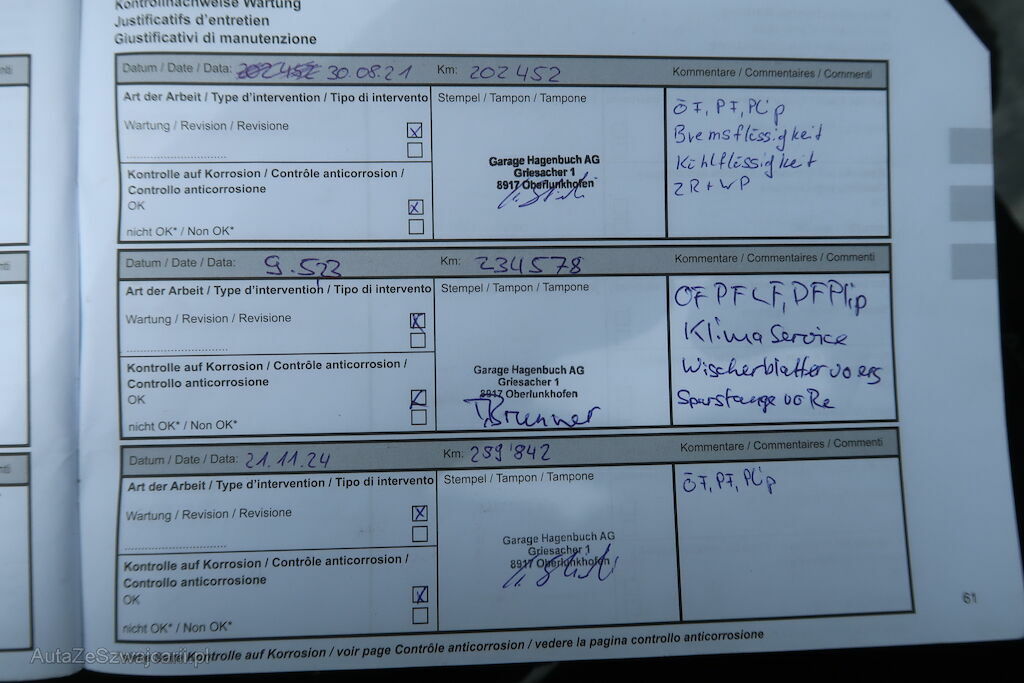 Kontrollnachweise Wartung
Justificatifs d'entretien
Giustificativi di manutenzione
Datum / Date / Data: 30.08.21 Km: 202452 Kommentare / Commentaires / Commenti
Art der Arbeit / Type d'intervention / Tipo di intervento Stempel / Tampon / Tampone
Wartung / Revision / Revisione
Kontrolle auf Korrosion / Contrôle anticorrosion /
Controllo anticorrosione
OK
nicht OK* / Non OK*
Garage Hagenbuch AG
Griesacher 1
8917 Oberlunkhofen
ÖF, PF, PLip
Bremsflüssigkeit
Kühlflüssigkeit
ZR + WP
Datum / Date / Data: 9.523 Km: 234578 Kommentare / Commentaires / Commenti
Art der Arbeit / Type d'intervention / Tipo di intervento Stempel / Tampon / Tampone
Wartung / Revision / Revisione
Kontrolle auf Korrosion / Contrôle anticorrosion /
Controllo anticorrosione
OK
nicht OK* / Non OK*
Garage Hagenbuch AG
Griesacher 1
8917 Oberlunkhofen
Brunner
ÖF PF LF, DF Plip
Klima Service
Wischerblätter vo ers
Spurstange vo Re
Datum / Date / Data: 21.11.24 Km: 259'842 Kommentare / Commentaires / Commenti
Art der Arbeit / Type d'intervention / Tipo di intervento Stempel / Tampon / Tampone
Wartung / Revision / Revisione
Kontrolle auf Korrosion / Contrôle anticorrosion /
Controllo anticorrosione
OK
nicht OK* / Non OK*
Garage Hagenbuch AG
Griesacher 1
8917 Oberlunkhofen
ÖF, PF, PLip
61
Kontrolle auf Korrosion / voir page Contrôle anticorrosion / vedere la pagina controllo anticorrosione
AutaZeSzwajcarii.pl